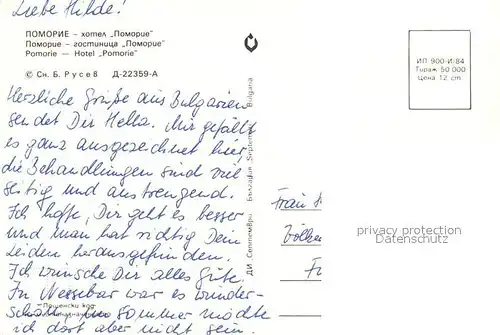 Liebe Hilde!
ПОМОРИЕ – хотел „Поморие"
Поморие – гостиница „Поморие"
Pomorie – Hotel „Pomorie"
© Сн. Б. Русев Д-22359-А
Herzliche Grüße aus Bulgarien
sendet Dir Hella. Mir gefällt
es ganz ausgezeichnet hier,
die Behandlungen sind viel
seitig und anstrengend.
Ich hoffe, Dir geht es besser
und man hat richtig Dein
Leiden herausgefunden.
Ich wünsche Dir alles Gute.
In Nessebar war es wunder-
schön. Im Sommer möchte
ich dort aber nicht sein.
Пощенски код
ДИ Септември България Septemvri Bulgaria
ИП 900-И/84
Тираж 50 000
Цена 12 ст.
Frau
privacy protection
Datenschutz